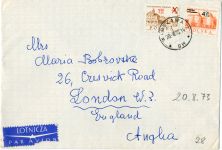 WARSZAWA
POLSKA
Mrs
Maria Bobrowska
26, Creswick Road
London W.3.
England
20.8.73
Anglia
LOTNICZA
PAR AVION
28